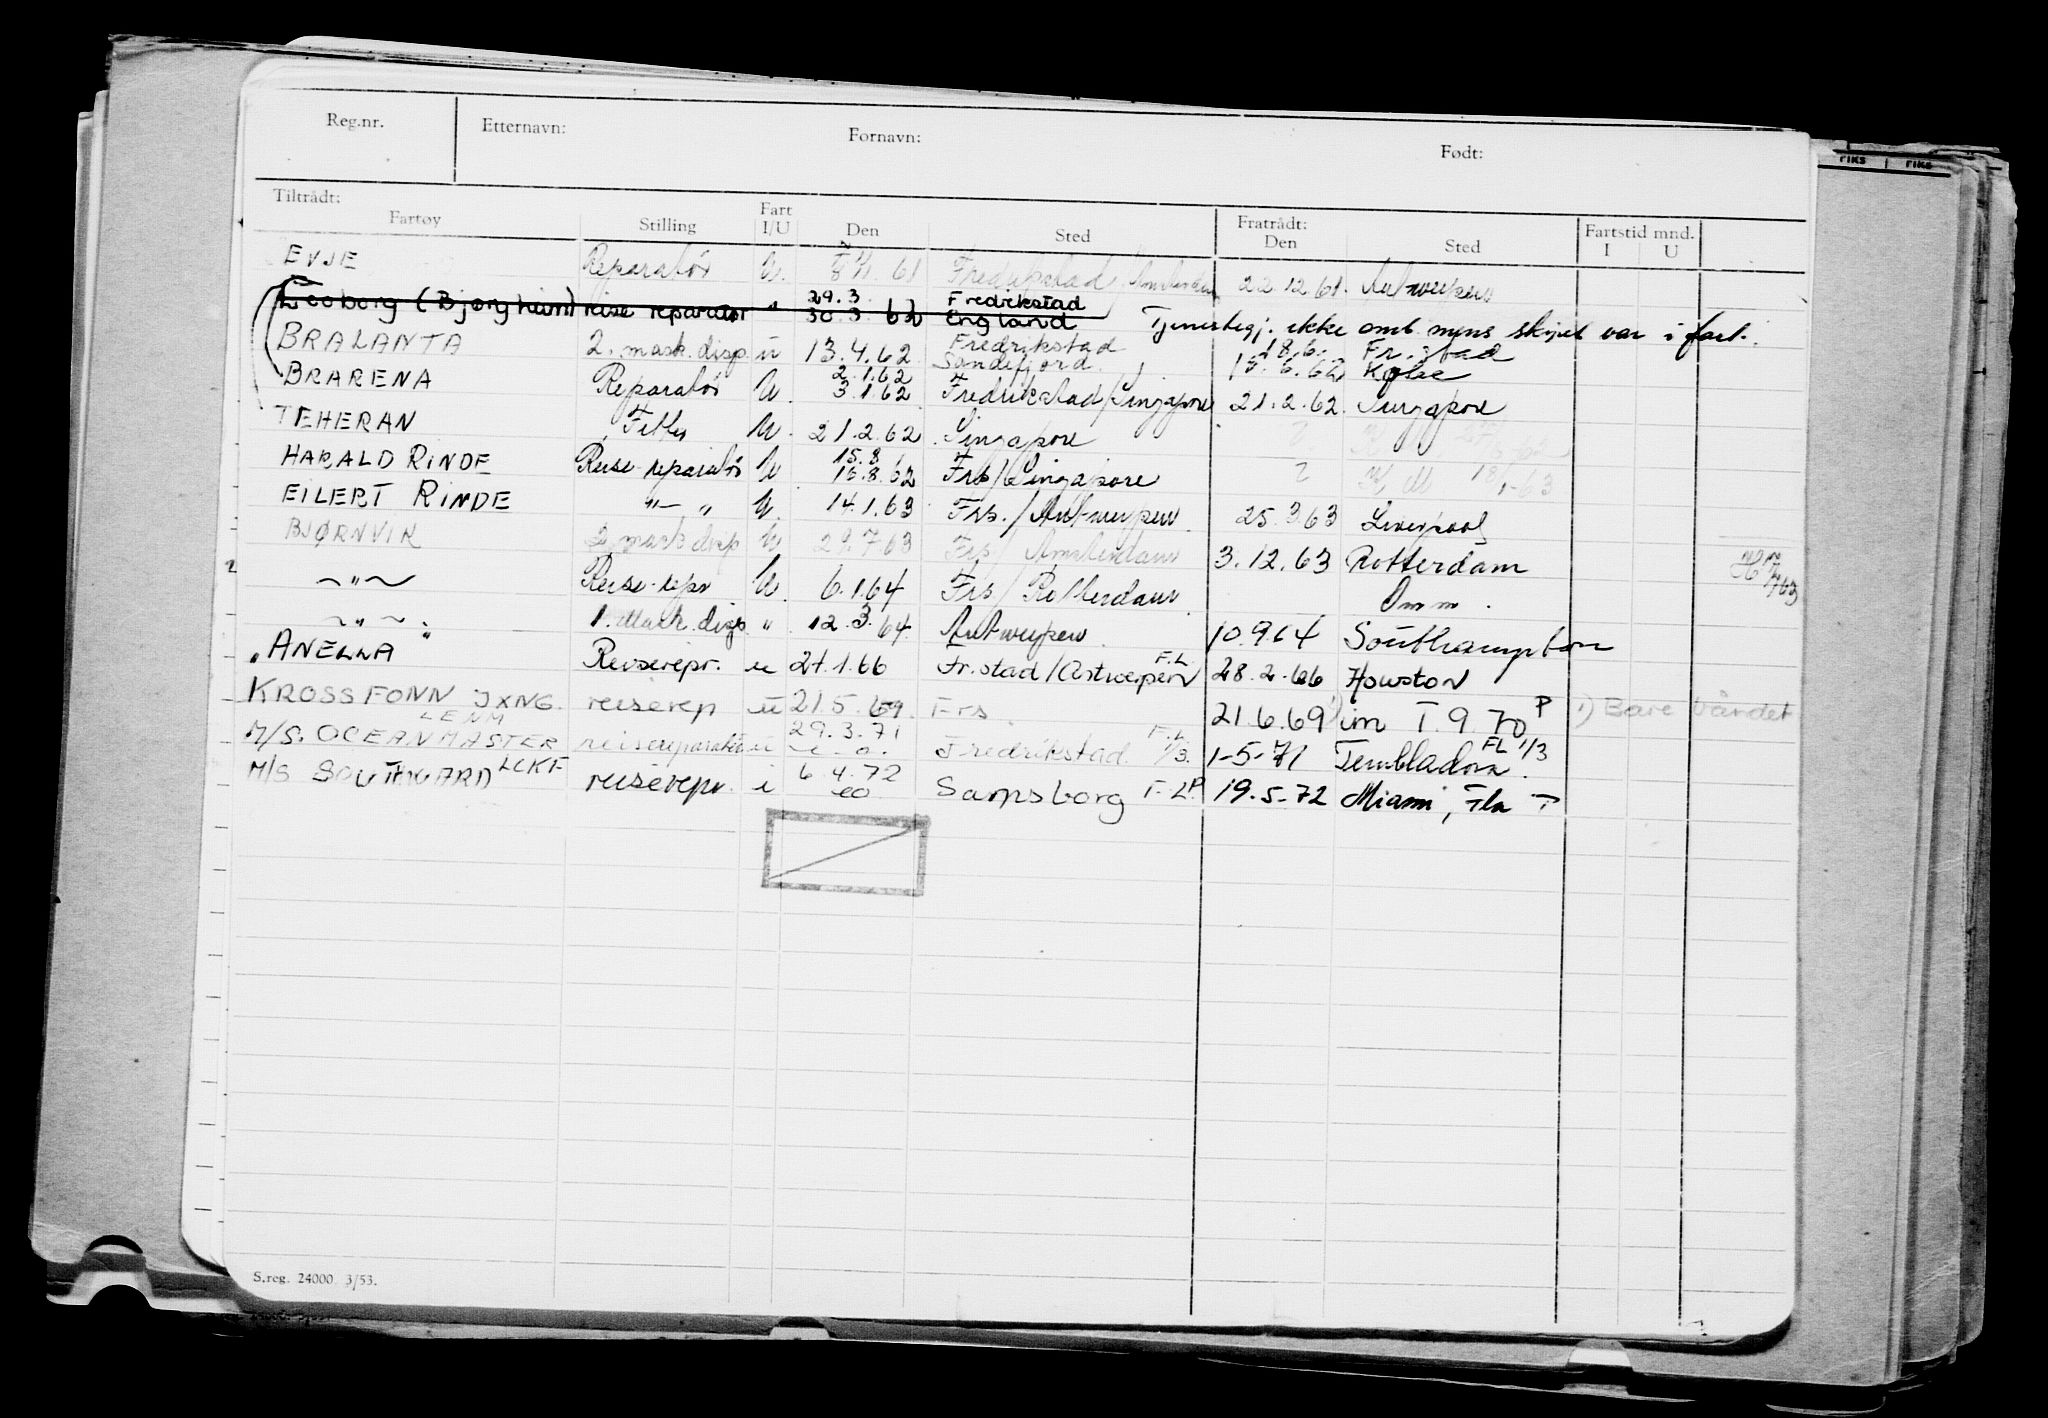 Reg.nr. Etternavn: Fornavn: Født:
Tiltrådt: Fratrådt: Fartstid mnd.
Fartøy Stilling Fart I/U Den Sted Den Sted I U
EVJE Reparatør U. 61 Fredrikstad / Amsterdam 22.12.61. Antwerpen
29.3. Fredrikstad
(Bjørgheim) reise reparatør " 30.3.62 England Tjenestegj. ikke omb. mens skipet var i fart.
Fredrikstad 18.6. Fr.stad
BRALANTA 2. mask. disp. u 13.4.62 Sandefjord. 15.6.62 Kobe
2.1.62
BRARENA Reparatør U. 3.1.62 Fredrikstad/Singapore 21.2.62. Singapore
TEHERAN Fitter U. 21.2.62 Singapore
15.8.
HARALD RINDE Reise-reparatør U 15.8.62 Frs/Singapore ? 18/1-63
EILERT RINDE " — " U. 14.1.63 Frs./Antwerpen 25.3.63 Liverpool
BJØRNVIK 2. mask disp U 29.7.63 Frs/Amsterdam 3.12.63 Rotterdam
~ " ~ Reise-repr U. 6.1.64 Frs/Rotterdam Omm.
~ " ~ . 1. Mask. disp " 12.3.64 Antwerpen 10.9.64 Southampton
"ANELLA" Reiserepr. u 21.1.66 Fr.stad/Antwerpen F.L. 28.2.66 Houston
KROSSFONN JXNG. reiserep u 21.5.69. Frs. 21.6.69 1) im T 9.70 P 1) Bare
LENM 29.3.71 F.L.
M/S. OCEANMASTER reisereparatør u Fredrikstad 1/3. 1-5-71 Tembladora. FL 1/3
LCKF 6.4.72
M/S SOUTHWARD reiserepr. i Sarpsborg F.L.P 19.5.72 Miami, Fla T
S.reg. 24000 3/53.